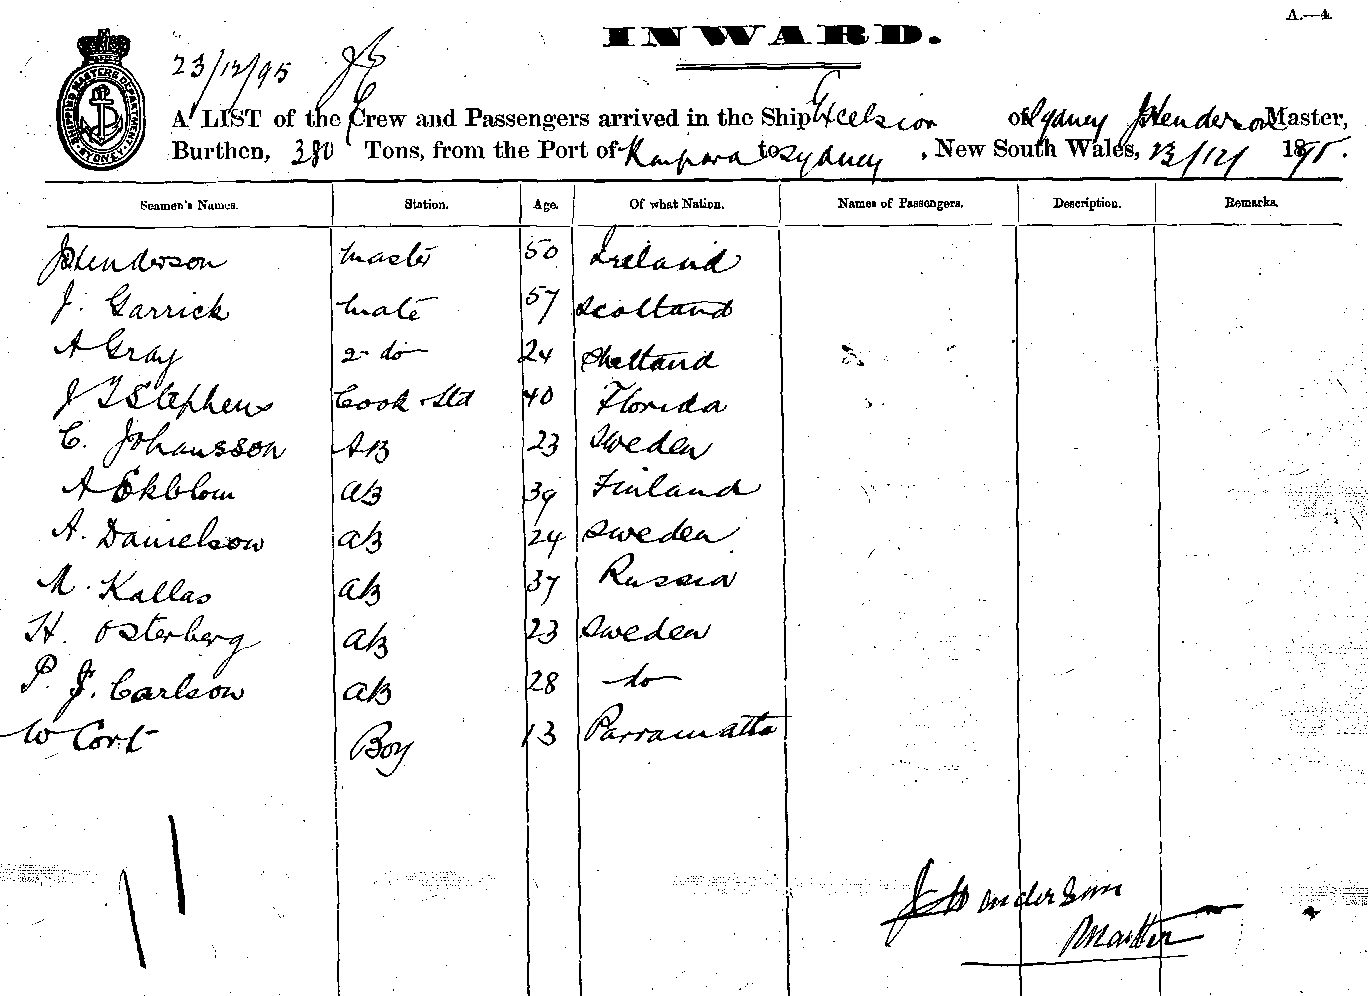 A.—4.
INWARD.
23/12/95
SHIPPING MASTERS DEPARTMENT SYDNEY
A LIST of the Crew and Passengers arrived in the Ship Excelsior of Sydney J Henderson Master,
Burthen, 380 Tons, from the Port of Kaipara to Sydney, New South Wales, 23/12/ 1895.
Seamen's Names. Station. Age. Of what Nation. Names of Passengers. Description. Remarks.
J Henderson Master 50 Ireland
J. Garrick Mate 57 Scotland
A Gray 2 do 24 Shetland
J T Stephens Cook & Std 40 Florida
C. Johansson AB 23 Sweden
A Ekblom AB 39 Finland
A. Danielson AB 24 Sweden
M. Kallas AB 37 Russia
H. Osterberg AB 23 Sweden
P. J. Carlson AB 28 do
W Cort Boy 13 Parramatta
J Henderson
Master